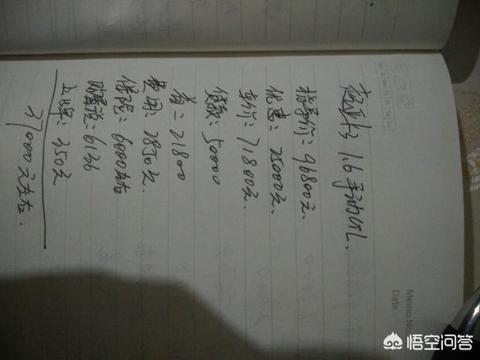 Memo No.
Date
起亚K3 1.6手动GL.
指导价：96800元.
优惠：25000元.
车价：71800元.
贷款：50000
首=21800
费用：2850元.
保险：6000左右
购置税：6136
上牌：350元
37000元左右.
悟空问答